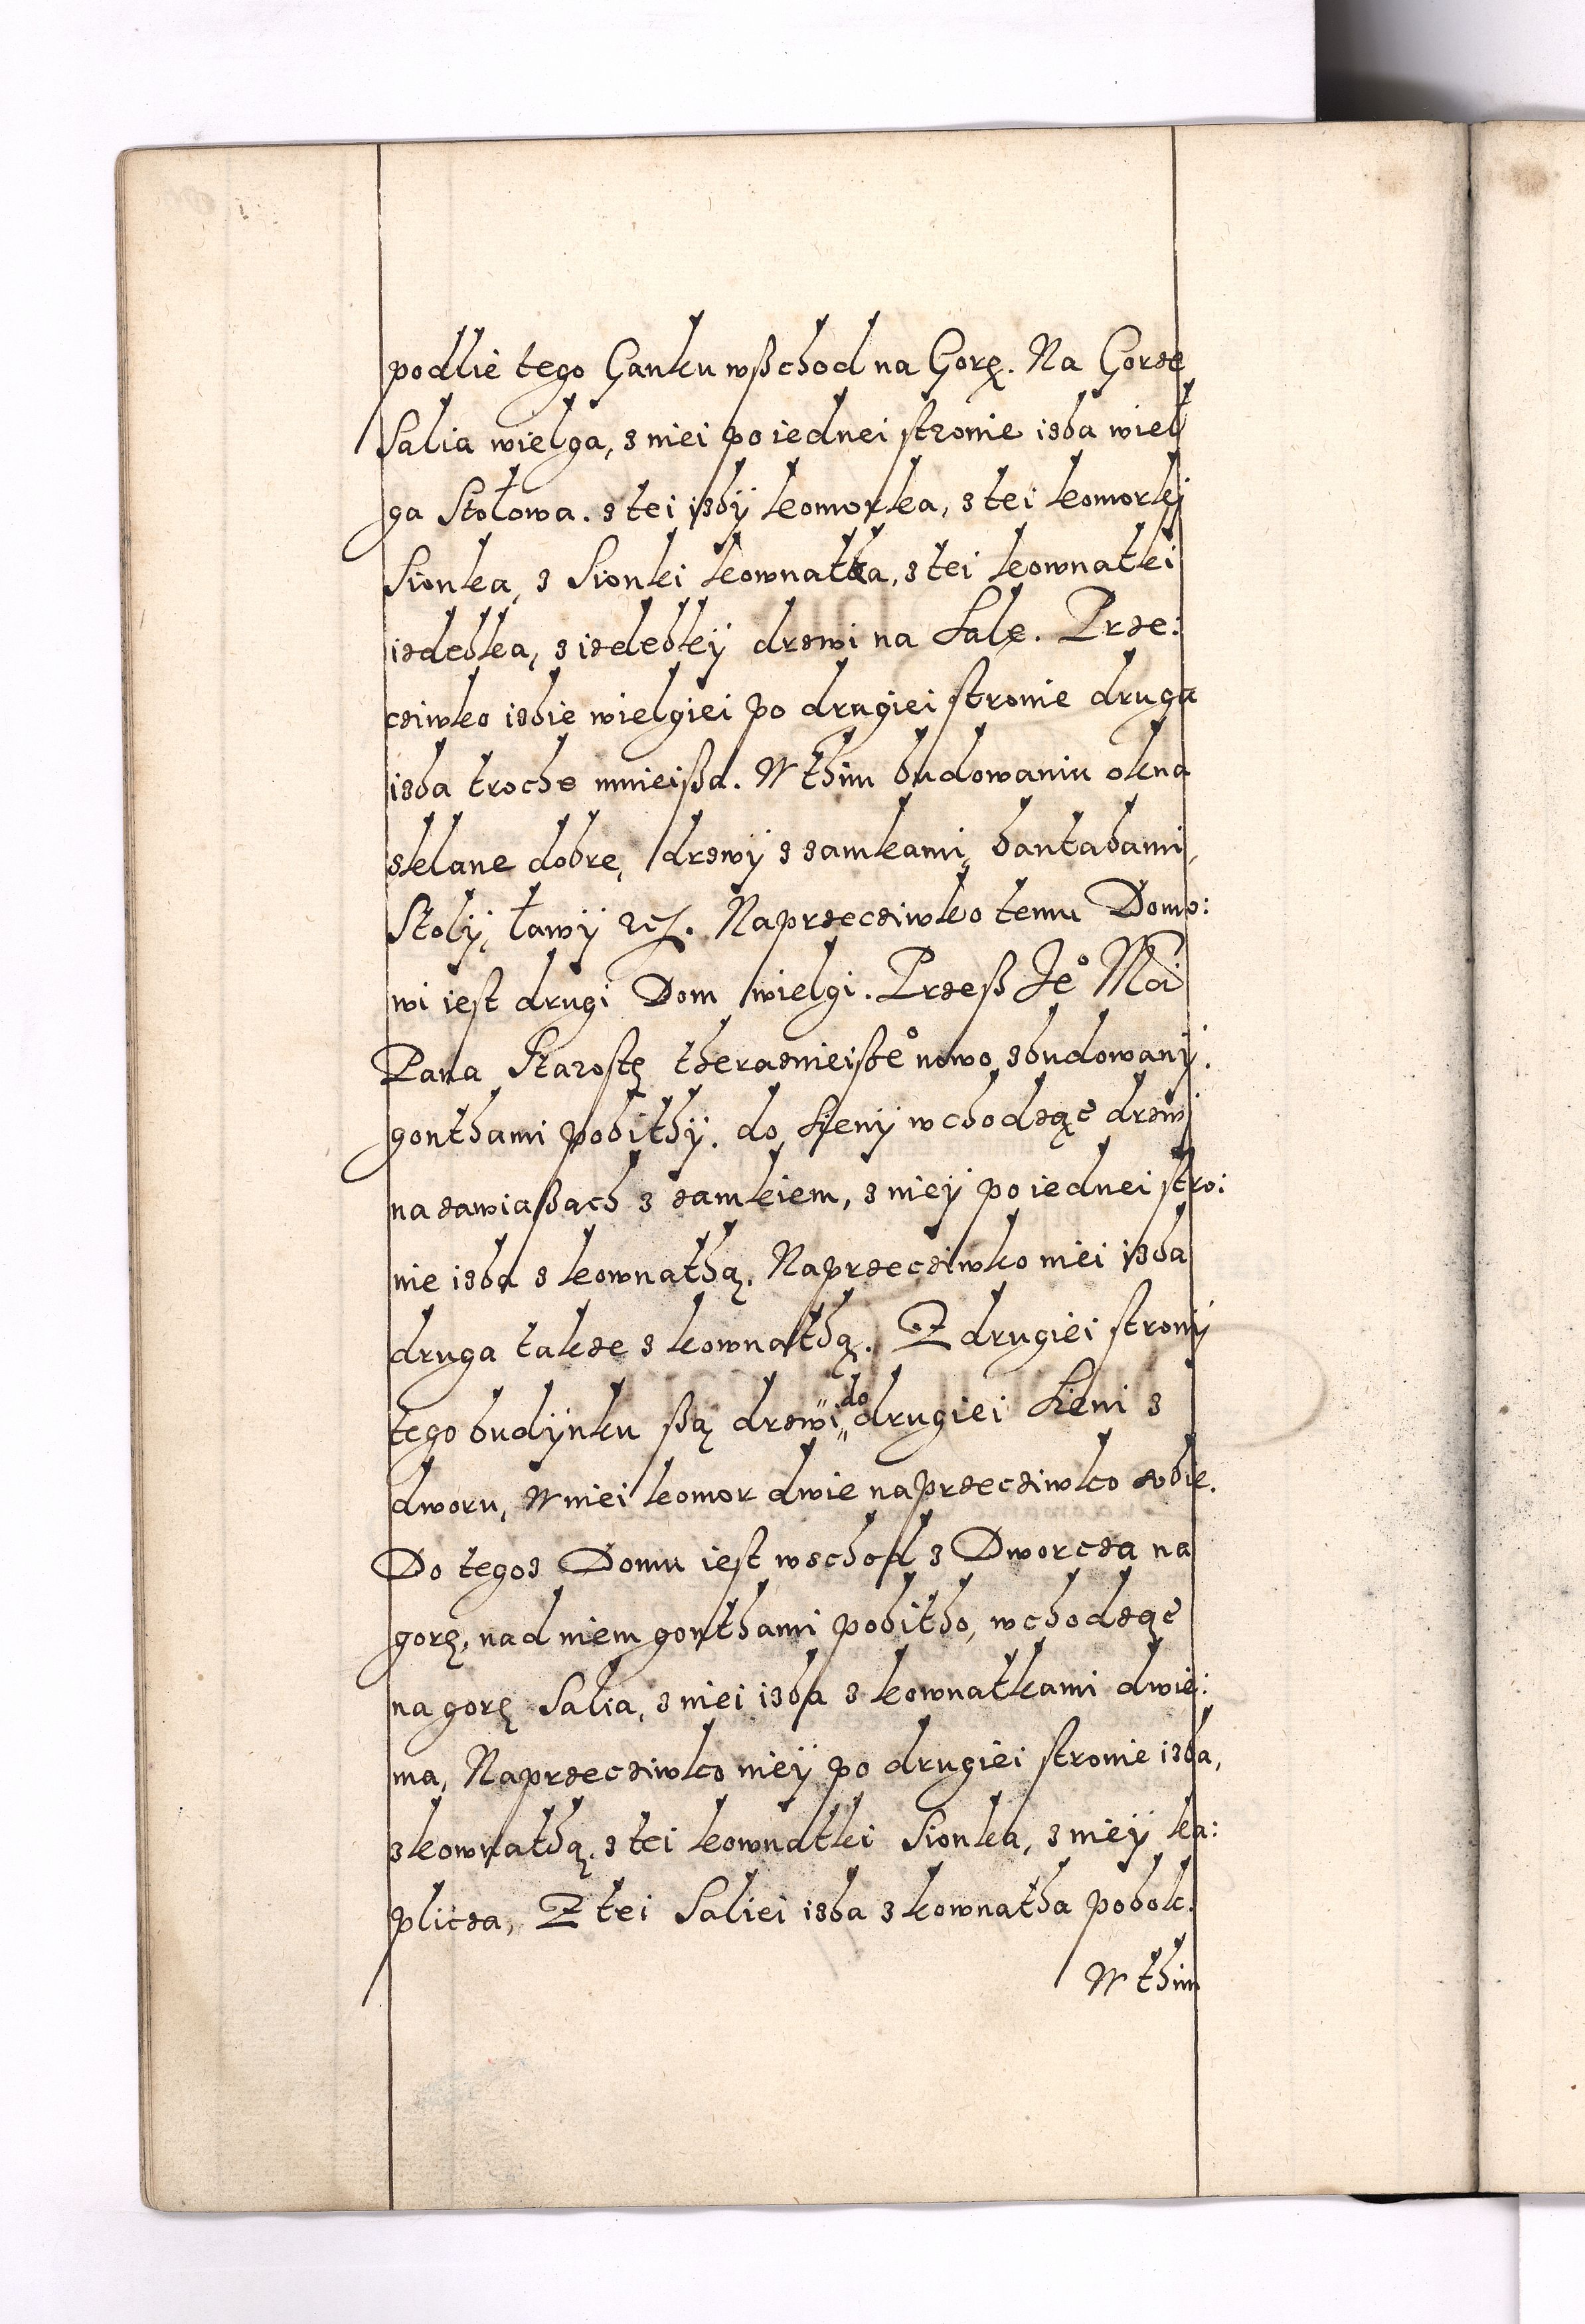 podlie tego Ganku wßchod na Gorę. Na Gorze
Salia wielga, z niei po iednei stronie izba wiel
ga Stołowa. z tei izbÿ komorka, z tei komorkÿ
Sionka, z Sionki kownatka, z tei kownatki
izdebka, z izdebkÿ drzwi na Salę. Prze:
cziwko izbie wielgiei po drugiei stronie druga
izba troche mnieißa. W thim budowaniu okna
sklane dobre, drzwÿ z zamkami, hantabami,
Stolÿ, ławÿ etc. Naprzecziwko temu Domo:
wi iest drugi Dom wielgi. Przeß Je° Mći
Pana Starostę theraznieisze° nowo zbudowanÿ.
gonthami pobithÿ. do Sienÿ wchodząć drzwi
na zawiaßach z zamkiem, z nieÿ po iednei stro:
nie izba z kownathą. Naprzecziwko niei izba
druga takze z kownathą. Z drugiei stronÿ
tego budÿnku ßą drzwi do drugiei Sieni z
dworu, W niei komor dwie naprzecziwko sobie.
Do tegoz Domu iest wschod z Dworcza na
gorę, nad niem gonthami pobitho, wchodząć
na gorę Salia, z niei izba z kownatkami dwie:
ma, Naprzecziwko nieÿ po drugiei stronie izba,
z kownathą, z tei kownatki Sionka, z nieÿ ka:
plicza, Z tei Saliei izba z kownatha pobok.
W thim